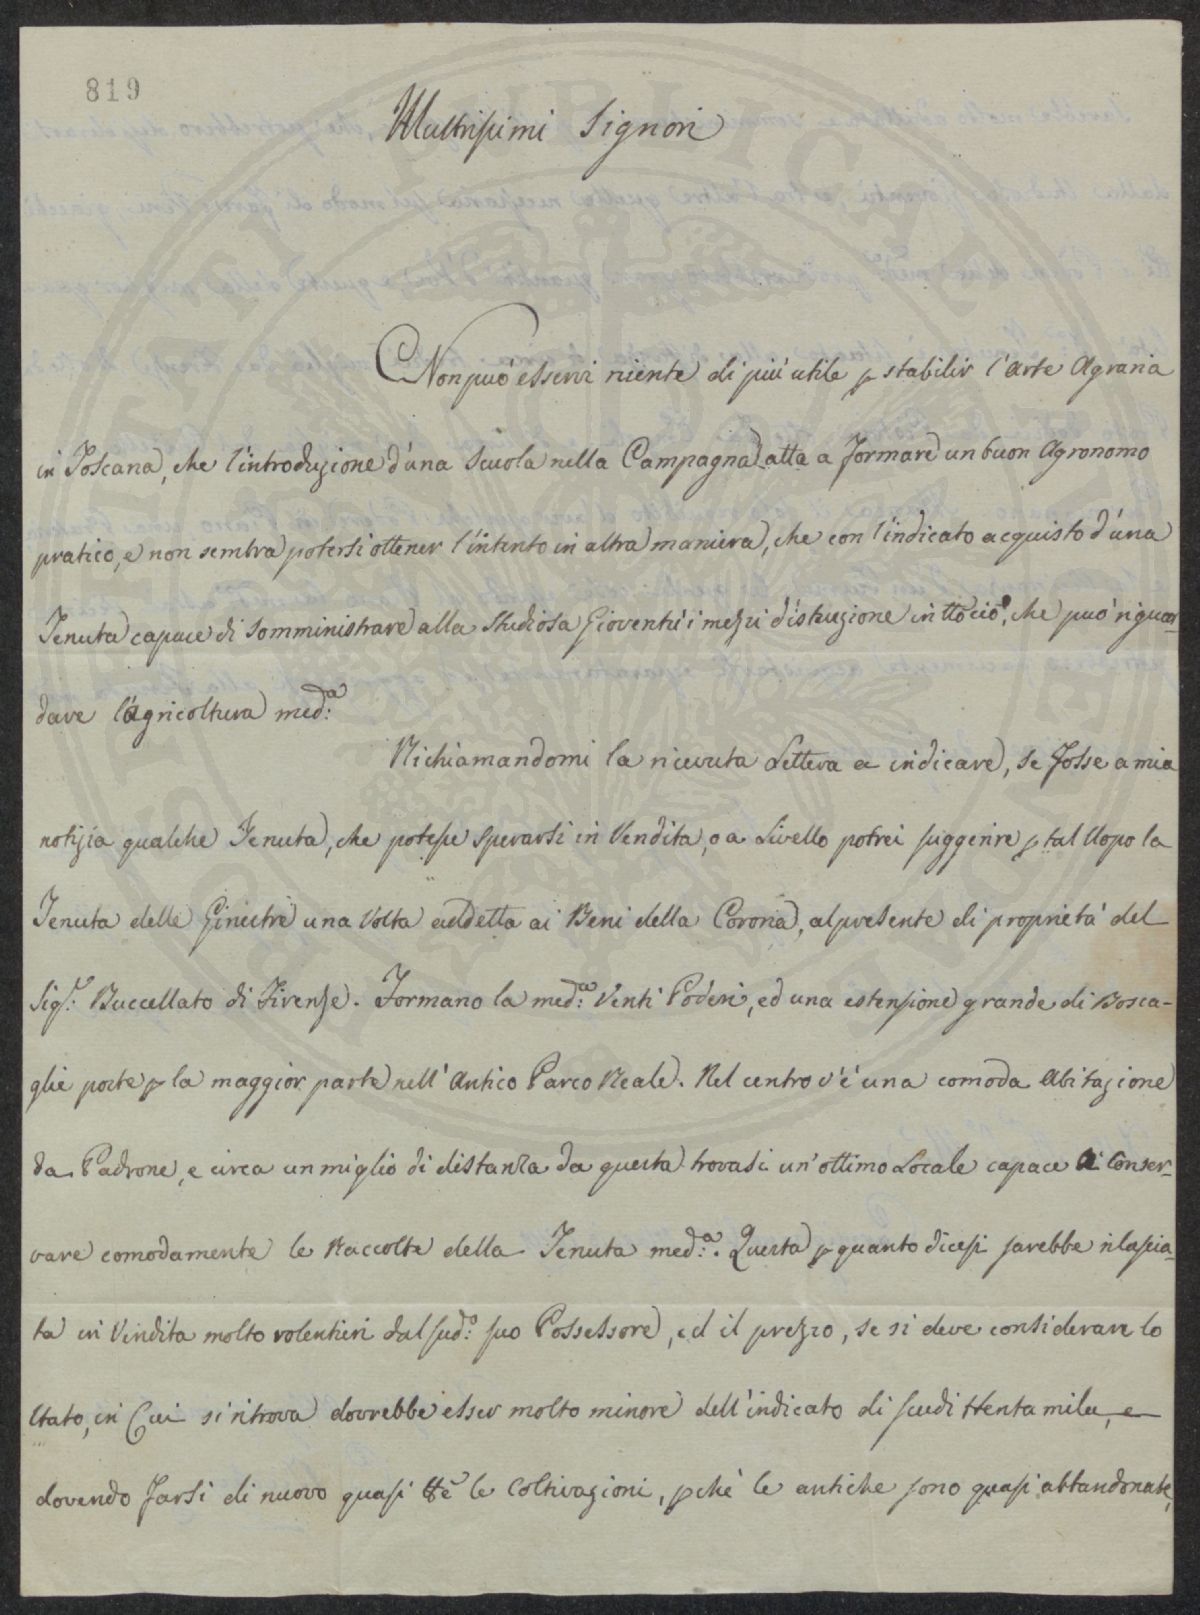 819
Illustrissimi Signori
Non può esservi niente di più utile p stabilir l'Arte Agraria
in Toscana, che l'introduzione d'una Scuola nella Campagna atta a formare un buon Agronomo
pratico, e non sembra potersi ottener l'intento in altra maniera, che con l'indicato acquisto d'una
Tenuta capace di somministrare alla studiosa Gioventù i mezzi d'istruzione in tto ciò, che può riguar-
dare l'Agricoltura med:a
Richiamandomi la ricevuta Lettera a indicare, se fosse a mia
notizia qualche Tenuta, che potesse sperarsi in Vendita, o a Livello potrei suggerire p tal Uopo la
Tenuta delle Ginestre una Volta addetta ai Beni della Corona, al presente di proprietà del
Sig:r Buccellato di Firenze. Formano la med:a Venti Poderi, ed una estensione grande di Bosca-
glie poste p la maggior parte nell'Antico Parco Reale. Nel centro v'è una comoda Abitazione
da Padrone, e circa un miglio di distanza da questa trovasi un'ottimo Locale capace di Conser-
vare comodamente le Raccolte della Tenuta med:a. Questa p quanto dicesi sarebbe rilascia-
ta in Vendita molto volentieri dal sud:o suo Possessore, ed il prezzo, se si deve considerare lo
stato, in Cui si ritrova dovrebbe esser molto minore dell'indicato di scudi ttenta mila, e
dovendo farsi di nuovo quasi tte le Coltivazioni, pchè le antiche sono quasi abbandonate,